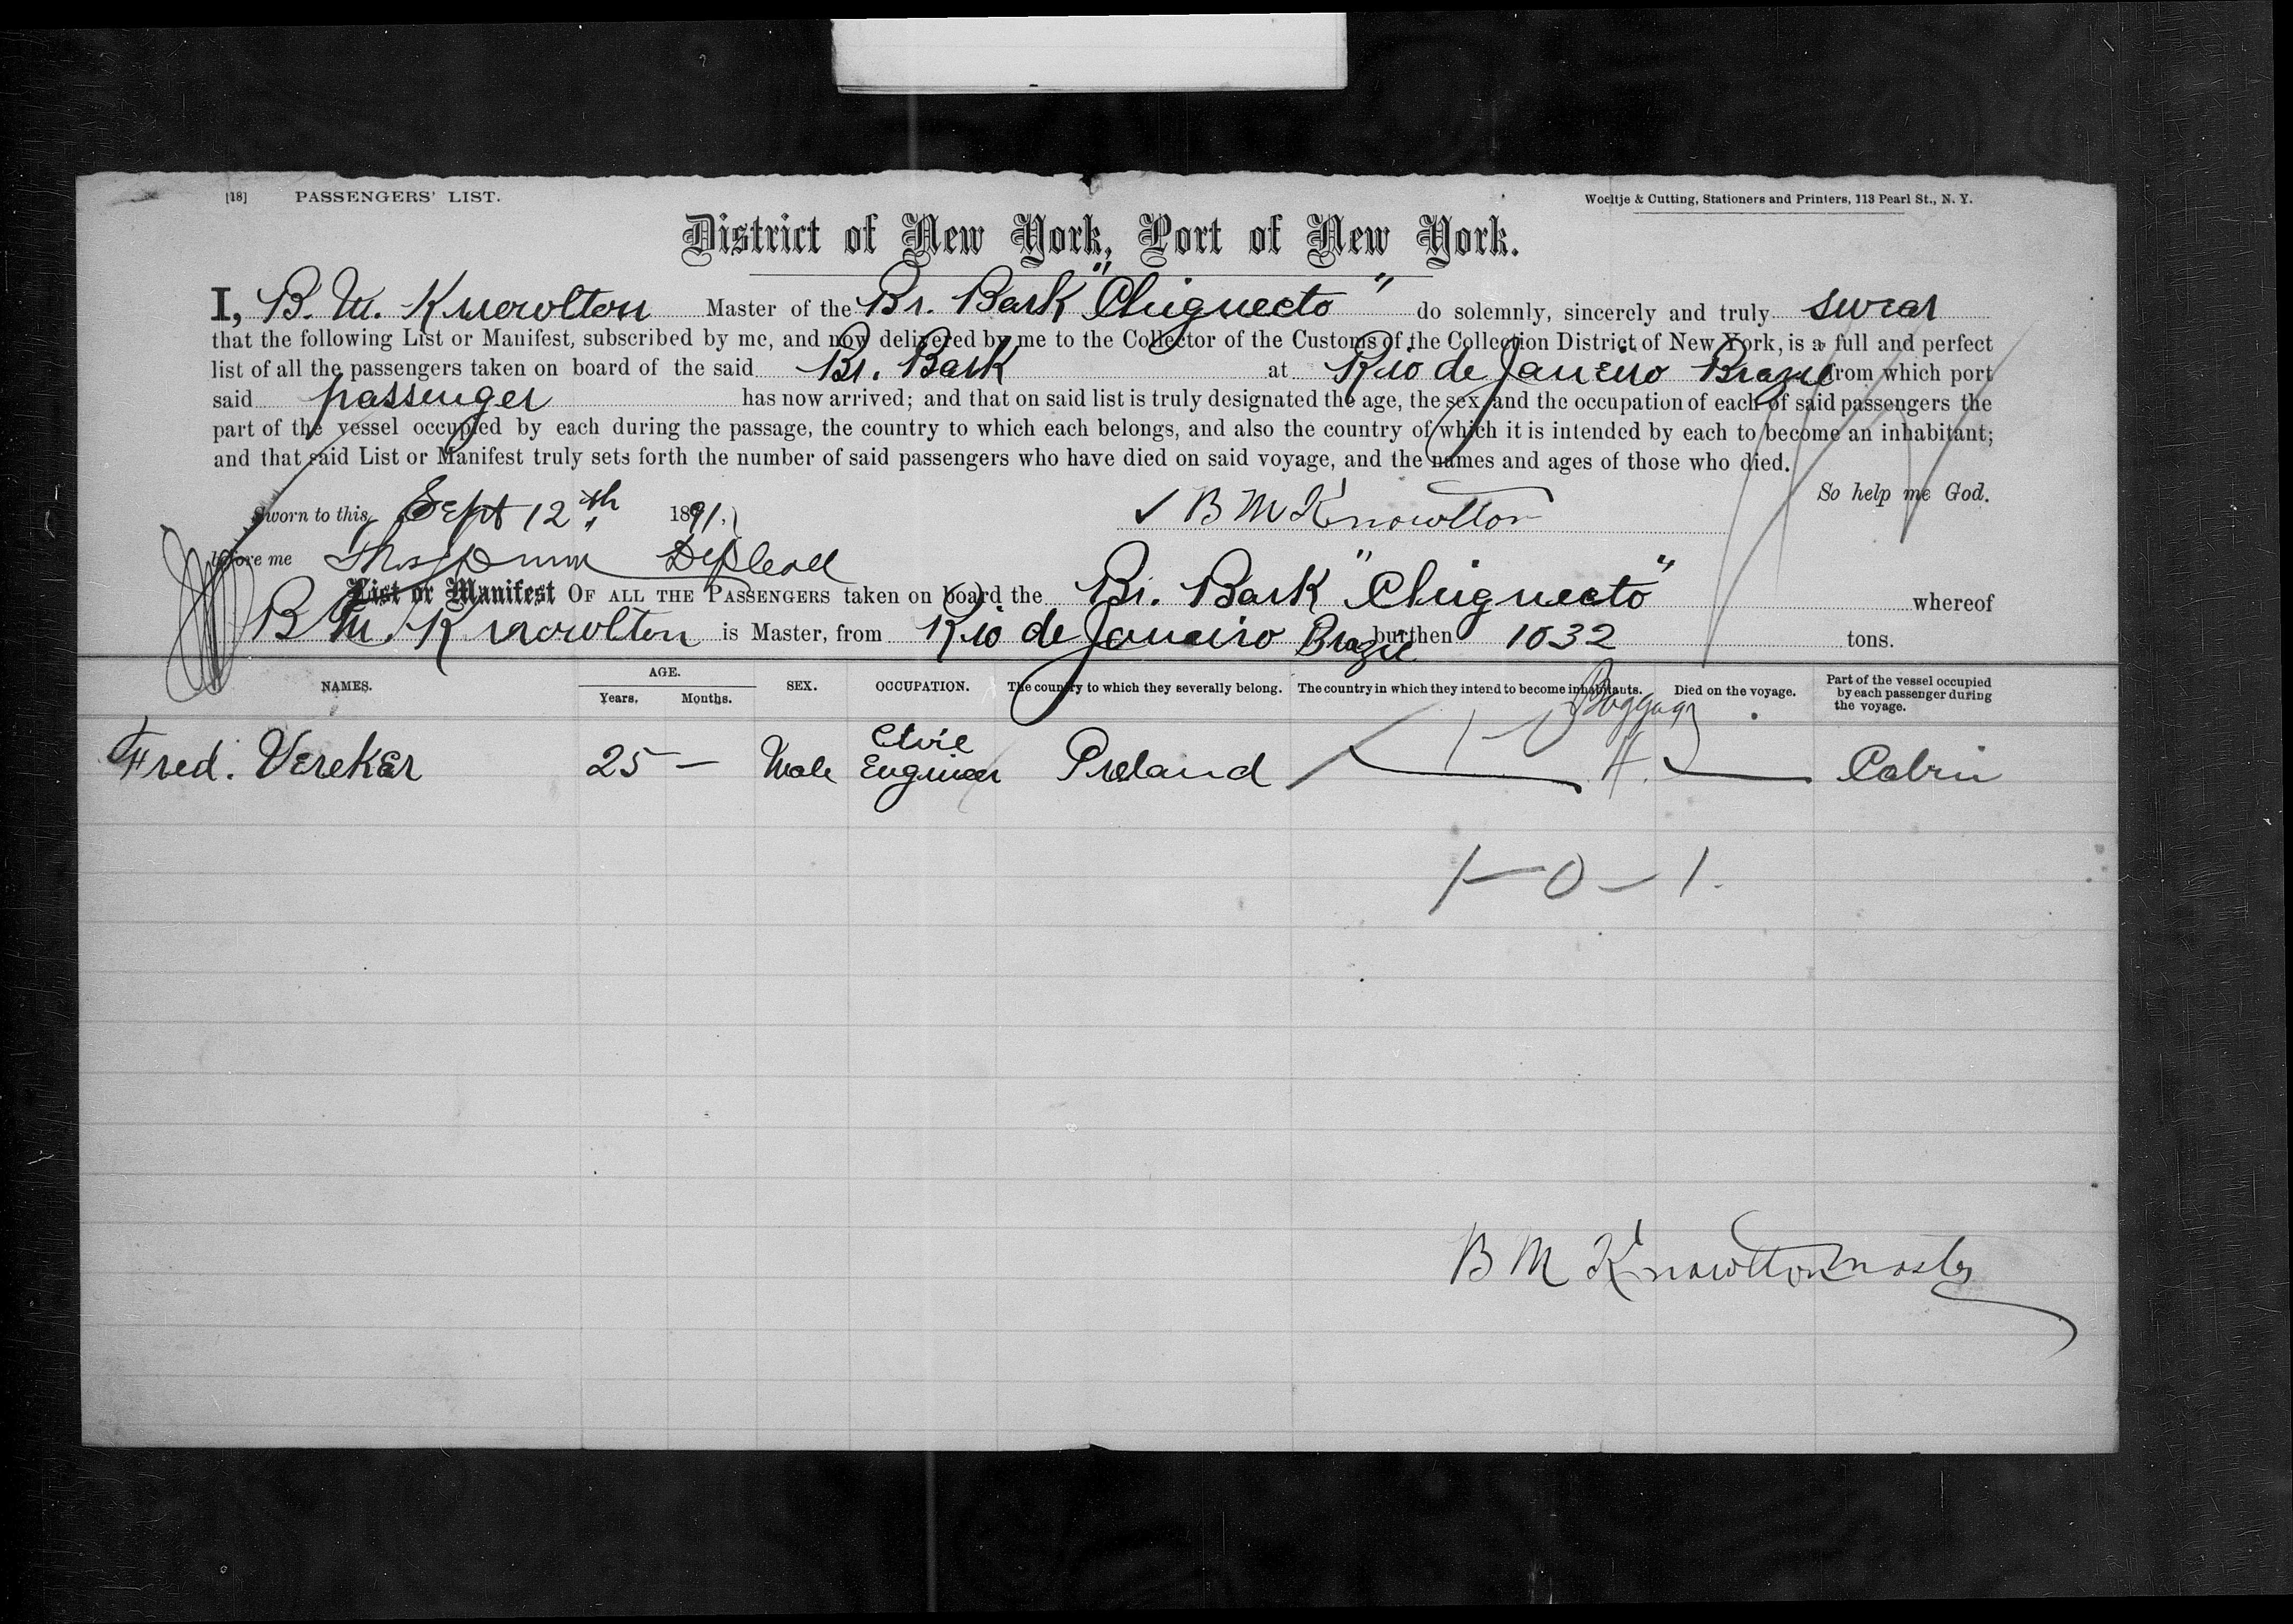 [18] PASSENGERS' LIST.
Woeltje & Cutting, Stationers and Printers, 113 Pearl St., N. Y.
District of New York, Port of New York.
I, B. M. Knowlton Master of the Br. Bark "Chignecto" do solemnly, sincerely and truly swear
that the following List or Manifest, subscribed by me, and now delivered by me to the Collector of the Customs of the Collection District of New York, is a full and perfect
list of all the passengers taken on board of the said Br. Bark at Rio de Janeiro Brazil from which port
said passenger has now arrived; and that on said list is truly designated the age, the sex and the occupation of each of said passengers the
part of the vessel occupied by each during the passage, the country to which each belongs, and also the country of which it is intended by each to become an inhabitant;
and that said List or Manifest truly sets forth the number of said passengers who have died on said voyage, and the names and ages of those who died.
So help me God.
Sworn to this Sept 12th 1891.
B M Knowlton
before me
List or Manifest OF ALL THE PASSENGERS taken on board the Br. Bark "Chignecto" whereof
B M. Knowlton is Master, from Rio de Janeiro Brazil burthen 1032 tons.
NAMES. AGE. Years. Months. SEX. OCCUPATION. The country to which they severally belong. The country in which they intend to become inhabitants. Died on the voyage. Part of the vessel occupied by each passenger during the voyage.
Baggage
Fred. Vereker 25 — Male Civil Engineer Ireland Cabin
1 — 0 — 1.
B M Knowlton master